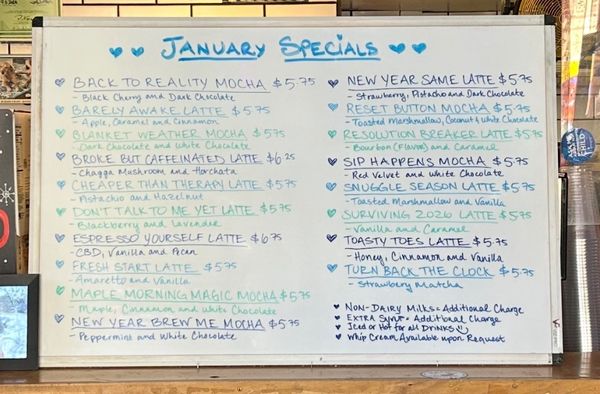 January Specials
Back to Reality Mocha $5.75
- Black Cherry and Dark Chocolate
Barely Awake Latte $5.75
- Apple, Caramel and Cinnamon
Blanket Weather Mocha $5.75
- Dark Chocolate and White Chocolate
Broke But Caffeinated Latte $6.25
- Chagga Mushroom and Horchata
Cheaper Than Therapy Latte $5.75
- Pistachio and Hazelnut
Don't Talk To Me Yet Latte $5.75
- Blackberry and Lavender
Espresso Yourself Latte $6.75
- CBD, Vanilla and Pecan
Fresh Start Latte $5.75
- Amaretto and Vanilla
Maple Morning Magic Mocha $5.75
- Maple, Cinnamon and White Chocolate
New Year Brew Me Mocha $5.75
- Peppermint and White Chocolate
New Year Same Latte $5.75
- Strawberry, Pistachio and Dark Chocolate
Reset Button Mocha $5.75
- Toasted Marshmallow, Coconut & White Chocolate
Resolution Breaker Latte $5.75
- Bourbon (Flavor) and Caramel
Sip Happens Mocha $5.75
- Red Velvet and White Chocolate
Snuggle Season Latte $5.75
- Toasted Marshmallow and Vanilla
Surviving 2026 Latte $5.75
- Vanilla and Caramel
Toasty Toes Latte $5.75
- Honey, Cinnamon and Vanilla
Turn Back The Clock $5.75
- Strawberry Matcha
Non-Dairy Milks = Additional Charge
Extra Syrup = Additional Charge
Iced or Hot for All Drinks
Whip Cream Available upon Request